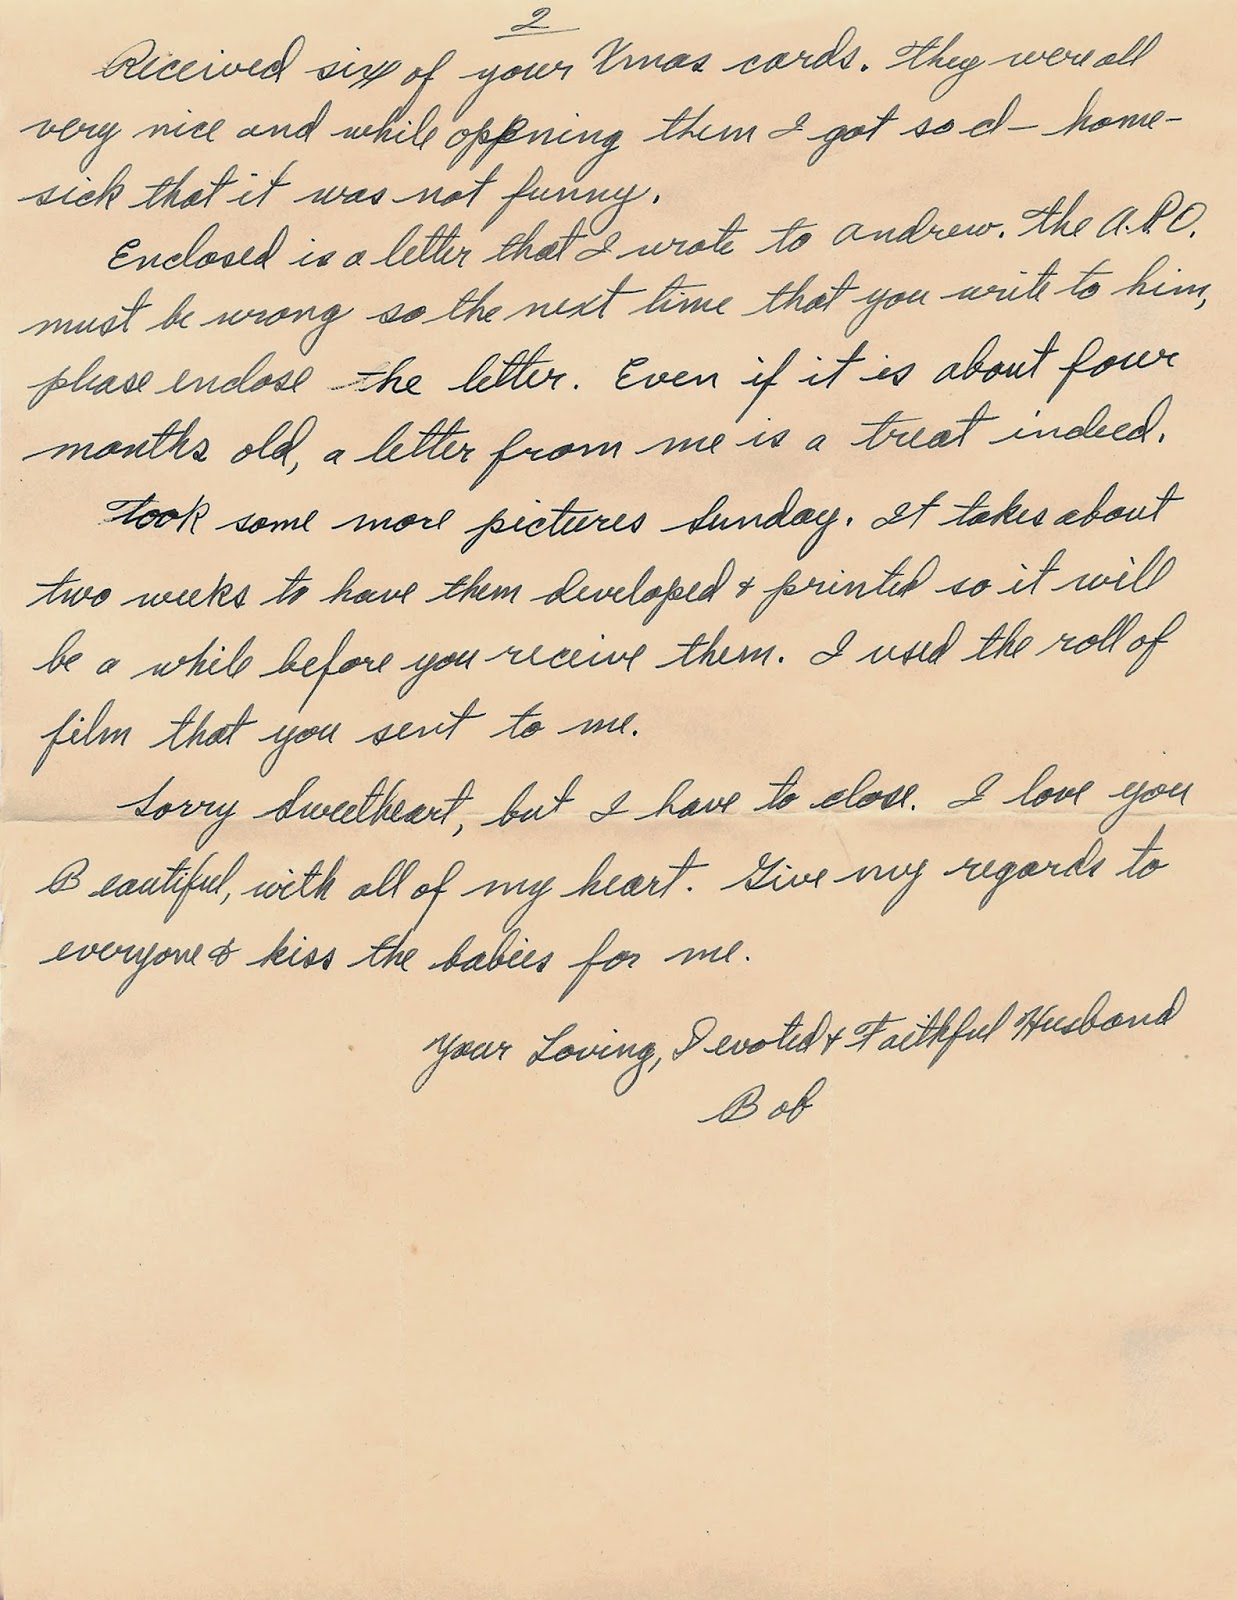 2
Received six of your Xmas cards. They were all
very nice and while oppening them I got so d— home-
sick that it was not funny.
Enclosed is a letter that I wrote to Andrew. The A.P.O.
must be wrong so the next time that you write to him,
please enclose the letter. Even if it is about four
months old, a letter from me is a treat indeed.
Took some more pictures Sunday. It takes about
two weeks to have them developed & printed so it will
be a while before you receive them. I used the roll of
film that you sent to me.
Sorry Sweetheart, but I have to close. I love you
Beautiful, with all of my heart. Give my regards to
everyone & kiss the babies for me.
Your Loving, Devoted & Faithful Husband
Bob